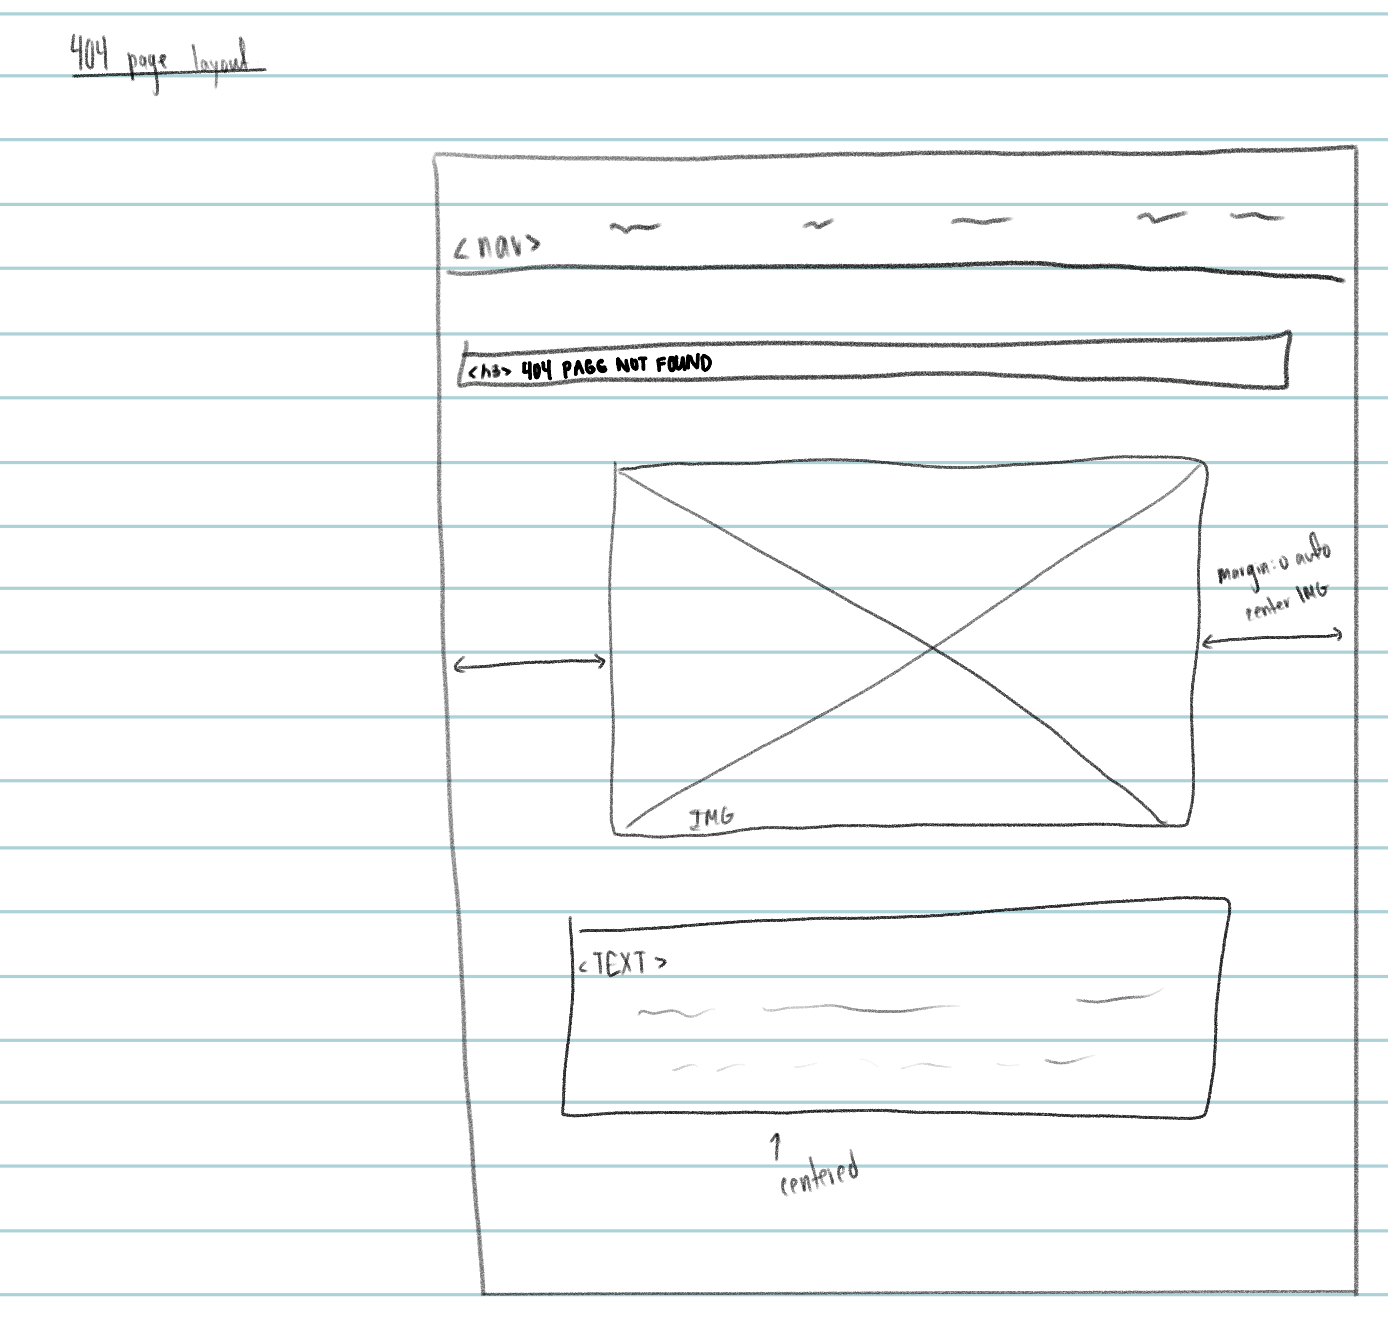 404 page layout
<nav>
<h3> 404 PAGE NOT FOUND
margin: 0 auto
center IMG
IMG
<TEXT>
centered